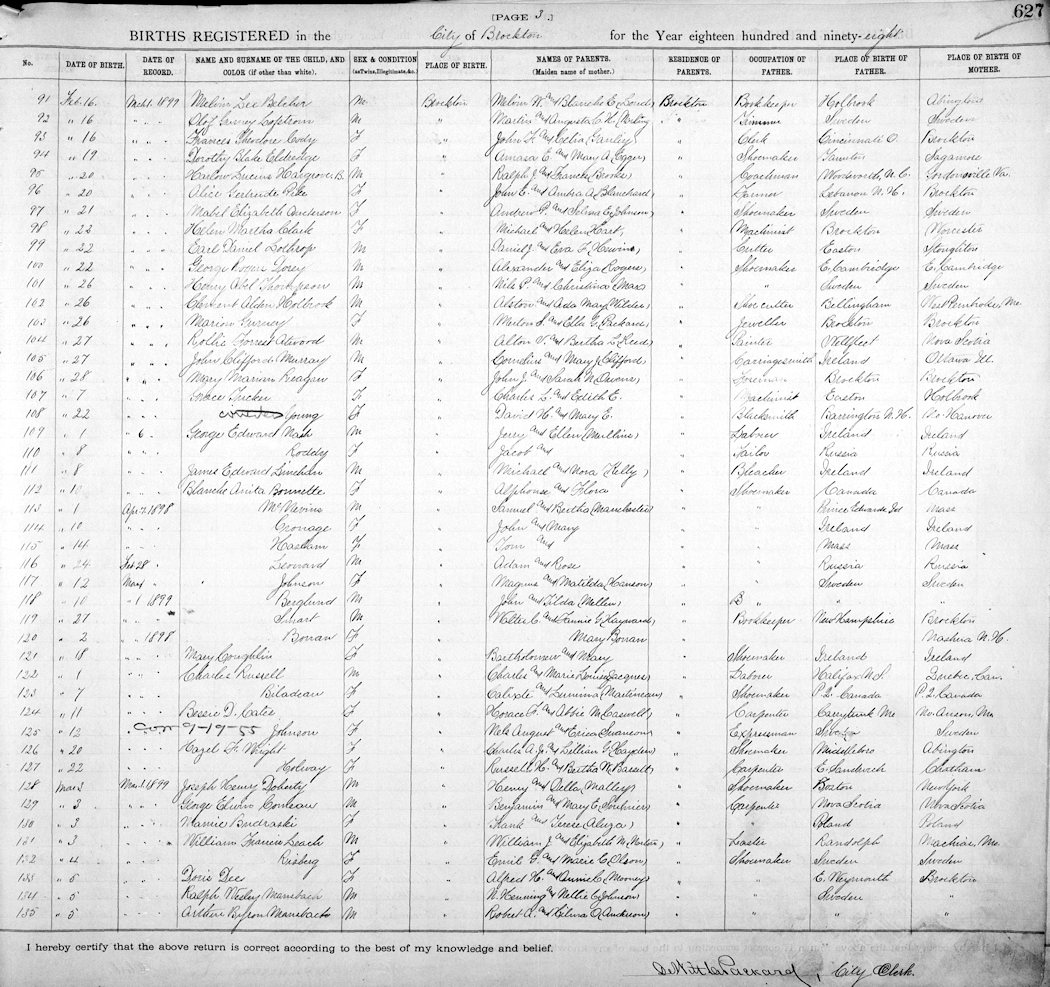 [PAGE 3.]
627
BIRTHS REGISTERED in the City of Brockton for the Year eighteen hundred and ninety-eight.
No. DATE OF BIRTH. DATE OF RECORD. NAME AND SURNAME OF THE CHILD, AND COLOR (if other than white). SEX & CONDITION (as Twins, Illegitimate, &c.) PLACE OF BIRTH. NAMES OF PARENTS. (Maiden name of mother.) RESIDENCE OF PARENTS. OCCUPATION OF FATHER. PLACE OF BIRTH OF FATHER. PLACE OF BIRTH OF MOTHER.
91 Feb. 16 1899 Melvin Lee Belcher M Brockton Melvin W. and Blanche E. Brockton Bookkeeper Holbrook Abington
92 " 16 " " " Olof Gurney M " Martin and Augusta C. " Sweden Sweden
93 " 16 " " " Frances Theodore F " John F. and Celia Ganley) " Clerk Cincinnati O. Brockton
94 " 19 " " " Dorothy Blake Eldredge F " Amasa E. and Mary A. " Shoemaker Taunton Sagamore
95 " 20 " " " Harlow Lucius Hargrove, B. M " Ralph J. and Frances (Brooks) " Coachman Woodsworth, N.C. Gordonsville Va.
96 " 20 " " " Alice Gertrude F " John E. and A. (Blanchard) " Lebanon N.H. Brockton
97 " 21 " " " Mabel Elizabeth Anderson F " Andrew P. and Selma E. (Johnson) " Shoemaker Sweden Sweden
98 " 22 " " " Helen Martha Clark F " Michael and Helen (Hart) " Machinist Brockton Worcester
99 " 22 " " " Earl Daniel Lothrop M " Daniel J. and Eva F. (Hewins) " Cutter Easton Stoughton
100 " 22 " " " George Dorey M " Alexander and Eliza (Rogers) " Shoemaker E. Cambridge E. Cambridge
101 " 26 " " " Henry Abel Thompson M " Nils P. and Christina " " Sweden Sweden
102 " 26 " " " Clement Alden Holbrook M " Alston and Ada May " Shoe cutter Bellingham West Pembroke, Me
103 " 26 " " " Marion Gurney F " and Ella G. (Packard) " Jeweller Brockton Brockton
104 " 27 " " " Rollie Forrest Atwood M " Alton and Bertha L. (Reed) " Painter Wellfleet Nova Scotia
105 " 27 " " " John Clifford (Murray) M " Cornelius and Mary J. (Clifford) " Carriagesmith Ireland Ottawa Ill.
106 " 28 " " " Mary Marion Reagan F " John J. and Sarah N. " Foreman Brockton Brockton
107 " 7 " " " Grace Tucker F " Charles L. and Edith E. " Machinist Easton Holbrook
108 " 22 " " " Young F " David H. and Mary E. " Blacksmith Barrington N.H. No. Hanover
109 " 1 " 6 " George Edward Nash M " Jerry and Ellen (Mullins) " Laborer Ireland Ireland
110 " 8 " " " Roddy F " Jacob and " Tailor Russia Russia
111 " 8 " " " James Edward Linehan M " Michael and Nora (Kelly) " Bleacher Ireland Ireland
112 " 10 " " " Blanche Anita Bonnette F " Alphonse and Flora " Shoemaker Canada Canada
113 " 1 Apr. 1898 McNevins M " Samuel and Bertha (Manchester) " " Prince Edwards Isd Mass
114 " 10 " " " F " John and Mary " " Ireland Ireland
115 " 14 " " " Hasham F " Tom and " " Mass Mass
116 " 24 Feb 28 " Leonard M " Adam and Rose " " Russia Russia
117 " 12 Mar " Johnson F " Magnus and Matilda (Hanson) " " Sweden Sweden
118 " 10 " 1 1899 Berglund M " John and Tilda " B " " "
119 " 27 " " " Smart M " Walter C. and Fannie G. (Hayward) " Bookkeeper New Hampshire Brockton
120 " 2 " " 1898 Bonan F " Mary Bonan Nashua N.H.
121 " 18 " " " Mary Coughlin F " Bartholomew and Mary " Shoemaker Ireland Ireland
122 " 1 " " " Charles Russell M " Charles and Marie Louise (Jacques) " Laborer Halifax N.S. Quebec, Can.
123 " 7 " " " Biladeau F " Calixte and (Martineau) " Shoemaker P.Q. Canada P.Q. Canada
124 " 11 " " " Bessie D. Cates F " Horace F. and Abbie M. (Caswell) " Carpenter Me No. Anson, Me
125 " 12 Corr 9-19-55 Johnson F " Nels August and Erica (Swanson) " Expressman Sweden Sweden
126 " 20 " " " Hazel F. Wright F " Charles A. Jr. and Lillian G. (Hayden) " Shoemaker Middleboro Abington
127 " 22 " " " Holway F " Russell H. and Bertha W. (Bassett) " Carpenter E. Sandwich Chatham
128 Mar 3 Mar 1 1899 Joseph Henry Doherty M " Henry and Della (Malley) " Shoemaker Boston New York
129 " 3 " " " George Edwin M " Benjamin and Mary E. " Carpenter Nova Scotia Nova Scotia
130 " 3 " " " Mamie Budraski F " Frank and " " Poland Poland
131 " 3 " " " William Francis Leach M " William J. and Elizabeth N. " Laster Randolph Machias, Me.
132 " 4 " " " Risberg F " Emil G. and Marie C. (Olson) " Shoemaker Sweden Sweden
133 " 5 " " " Doris F " Alfred H. and Annie C. (Mooney) " " E. Weymouth Brockton
134 " 5 " " " Ralph Wesley M " N. Henning and Nellie C. (Johnson) " " Sweden "
135 " 5 " " " Arthur Byron M " Robert A. and Hilma O. (Anderson) " " " "
I hereby certify that the above return is correct according to the best of my knowledge and belief.
De Witt C. Packard, City Clerk.